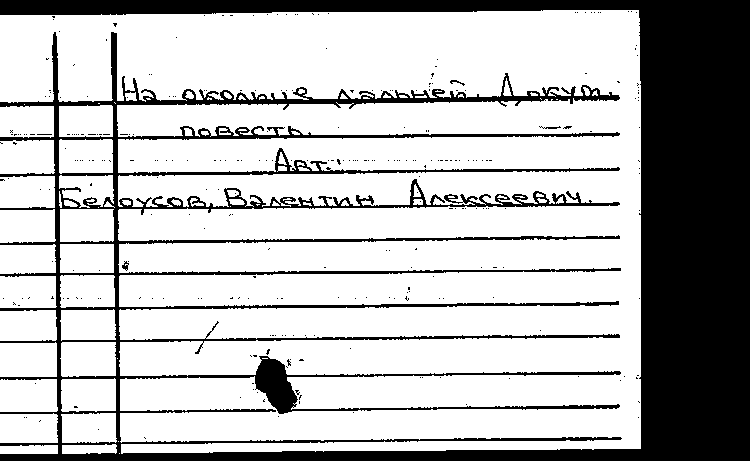 На околице дальней. Докум.
повесть.
Авт.:
Белоусов, Валентин Алексеевич.